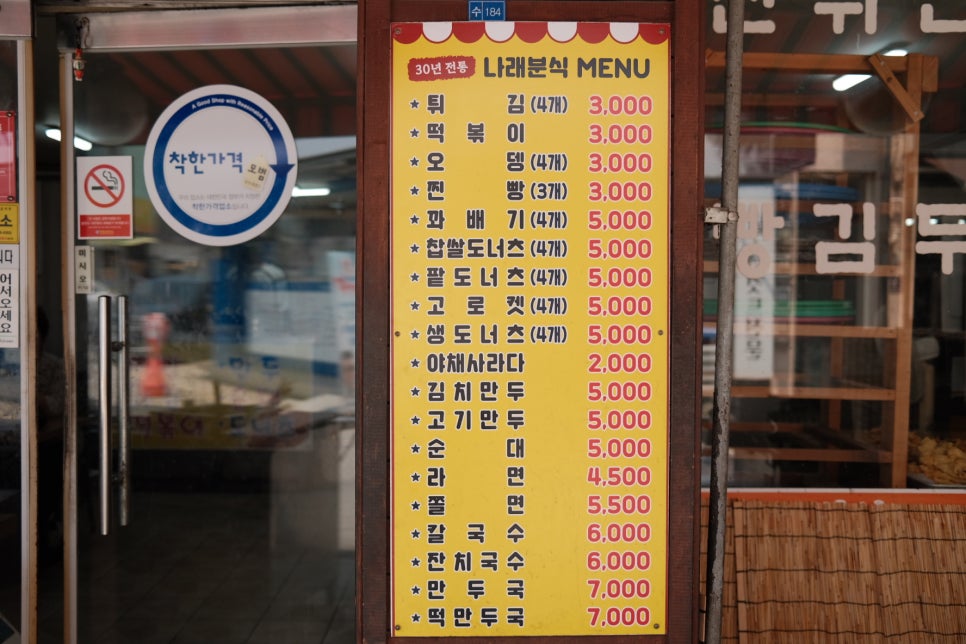 수 184
30년 전통 나래분식 MENU
★ 튀 김 (4개) 3,000
★ 떡 볶 이 3,000
★ 오 뎅 (4개) 3,000
★ 찐 빵 (3개) 3,000
★ 꽈 배 기 (4개) 5,000
★ 찹쌀도너츠 (4개) 5,000
★ 팥 도 너 츠 (4개) 5,000
★ 고 로 켓 (4개) 5,000
★ 생 도 너 츠 (4개) 5,000
★ 야채사라다 2,000
★ 김 치 만 두 5,000
★ 고 기 만 두 5,000
★ 순 대 5,000
★ 라 면 4,500
★ 쫄 면 5,500
★ 칼 국 수 6,000
★ 잔 치 국 수 6,000
★ 만 두 국 7,000
★ 떡 만 두 국 7,000
A Good Shop with Reasonable Price
착한가격
착한가격업소입니다.
미시오
어서오세요
빵 김 두